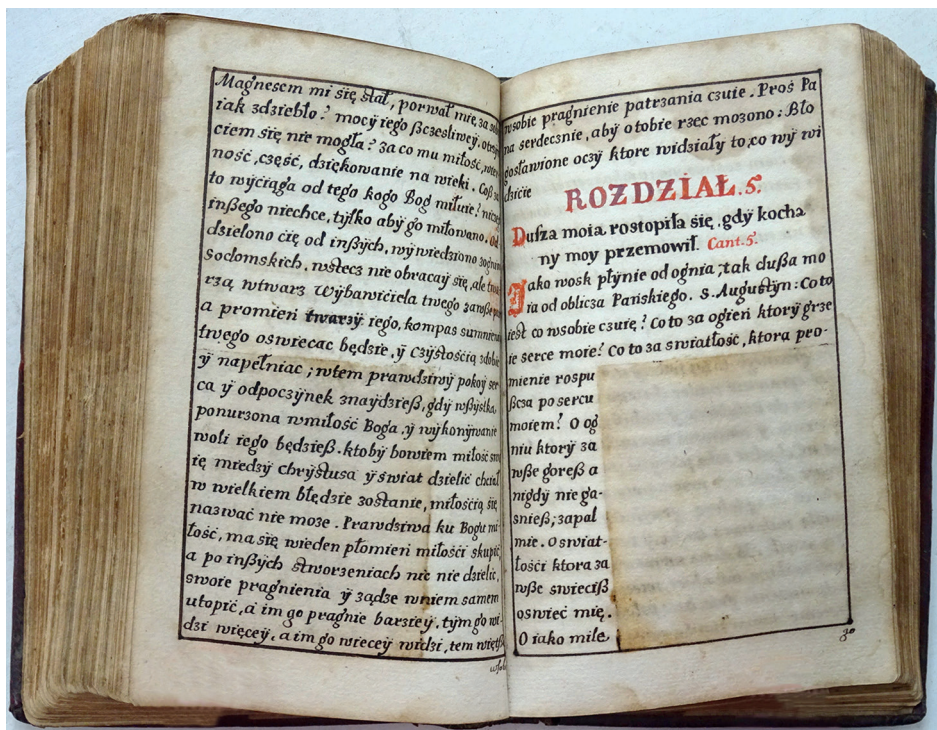 Magnesem mi się stał, porwał mię, za
iak zdziebło? mocÿ iego ßczesliweÿ
ciem się nie mogła? za co mu miłość,
ność, część, dziękowanie na wieki. Coß
to wÿciąga od tego kogo Bog miłuie?
inßego niechce, tÿlko abÿ go miłowano. Od
dzielono cię od inßÿch, wÿwiedziono
Sodomskich, wstecz nie obracaÿ się, ale
rzą wtwarz Wÿbawićiela twego
a promień twarzÿ iego, kompas
twego oswiecac będzie, ÿ Czÿstośćią
ÿ napełniac; wtem prawdziwÿ pokoÿ ser
ca ÿ odpoczÿnek znaÿdzieß, gdÿ wßÿstka
ponurzona wmiłość Boga, ÿ wÿkonÿwanie
woli iego będzieß. ktobÿ bowiem miłość
ię miedzÿ chrÿstusa ÿ świat dzielić chciał
w wielkiem błędzie zostanie, miłośćią się
nazwać nie moze. Prawdziwa ku Bogu mi
łość, ma się wieden płomień miłośći skupić,
a po inßÿch stworzeniach nic nie dzielić,
swoie pragnienia ÿ ządze wniem samem
utopić, a im go pragnie barzieÿ, tÿm go wi
dzi więceÿ, a im go wieceÿ widzi, tem
wsobie pragnienie patrzania czuie. Proś Pa
na serdecznie, abÿ otobie rzec mozono: Bło
gosławione oczÿ ktore widziałÿ to, co wÿ wi
dzićie
ROZDZIAŁ. 5.
Dußza moia rostopiła się, gdÿ kocha
ny moy przemowił. Cant. 5.
Jako wosk płÿnie od ognia, tak dußa mo
ia od oblicza Pańskiego. S. Augustÿn: Co to
iest co wsobie czuię? Co to za ogień ktorÿ grze
ie serce moie? Co to za swiatłość, ktora pro-
mienie rospu
ßcza po sercu
moiem? O og
niu ktorÿ za
wße goreß a
nigdÿ niega-
snieß; zapal
mie. O swiat-
łośći ktora za
wße swiećiß
oswieć mię.
O iako mile
30